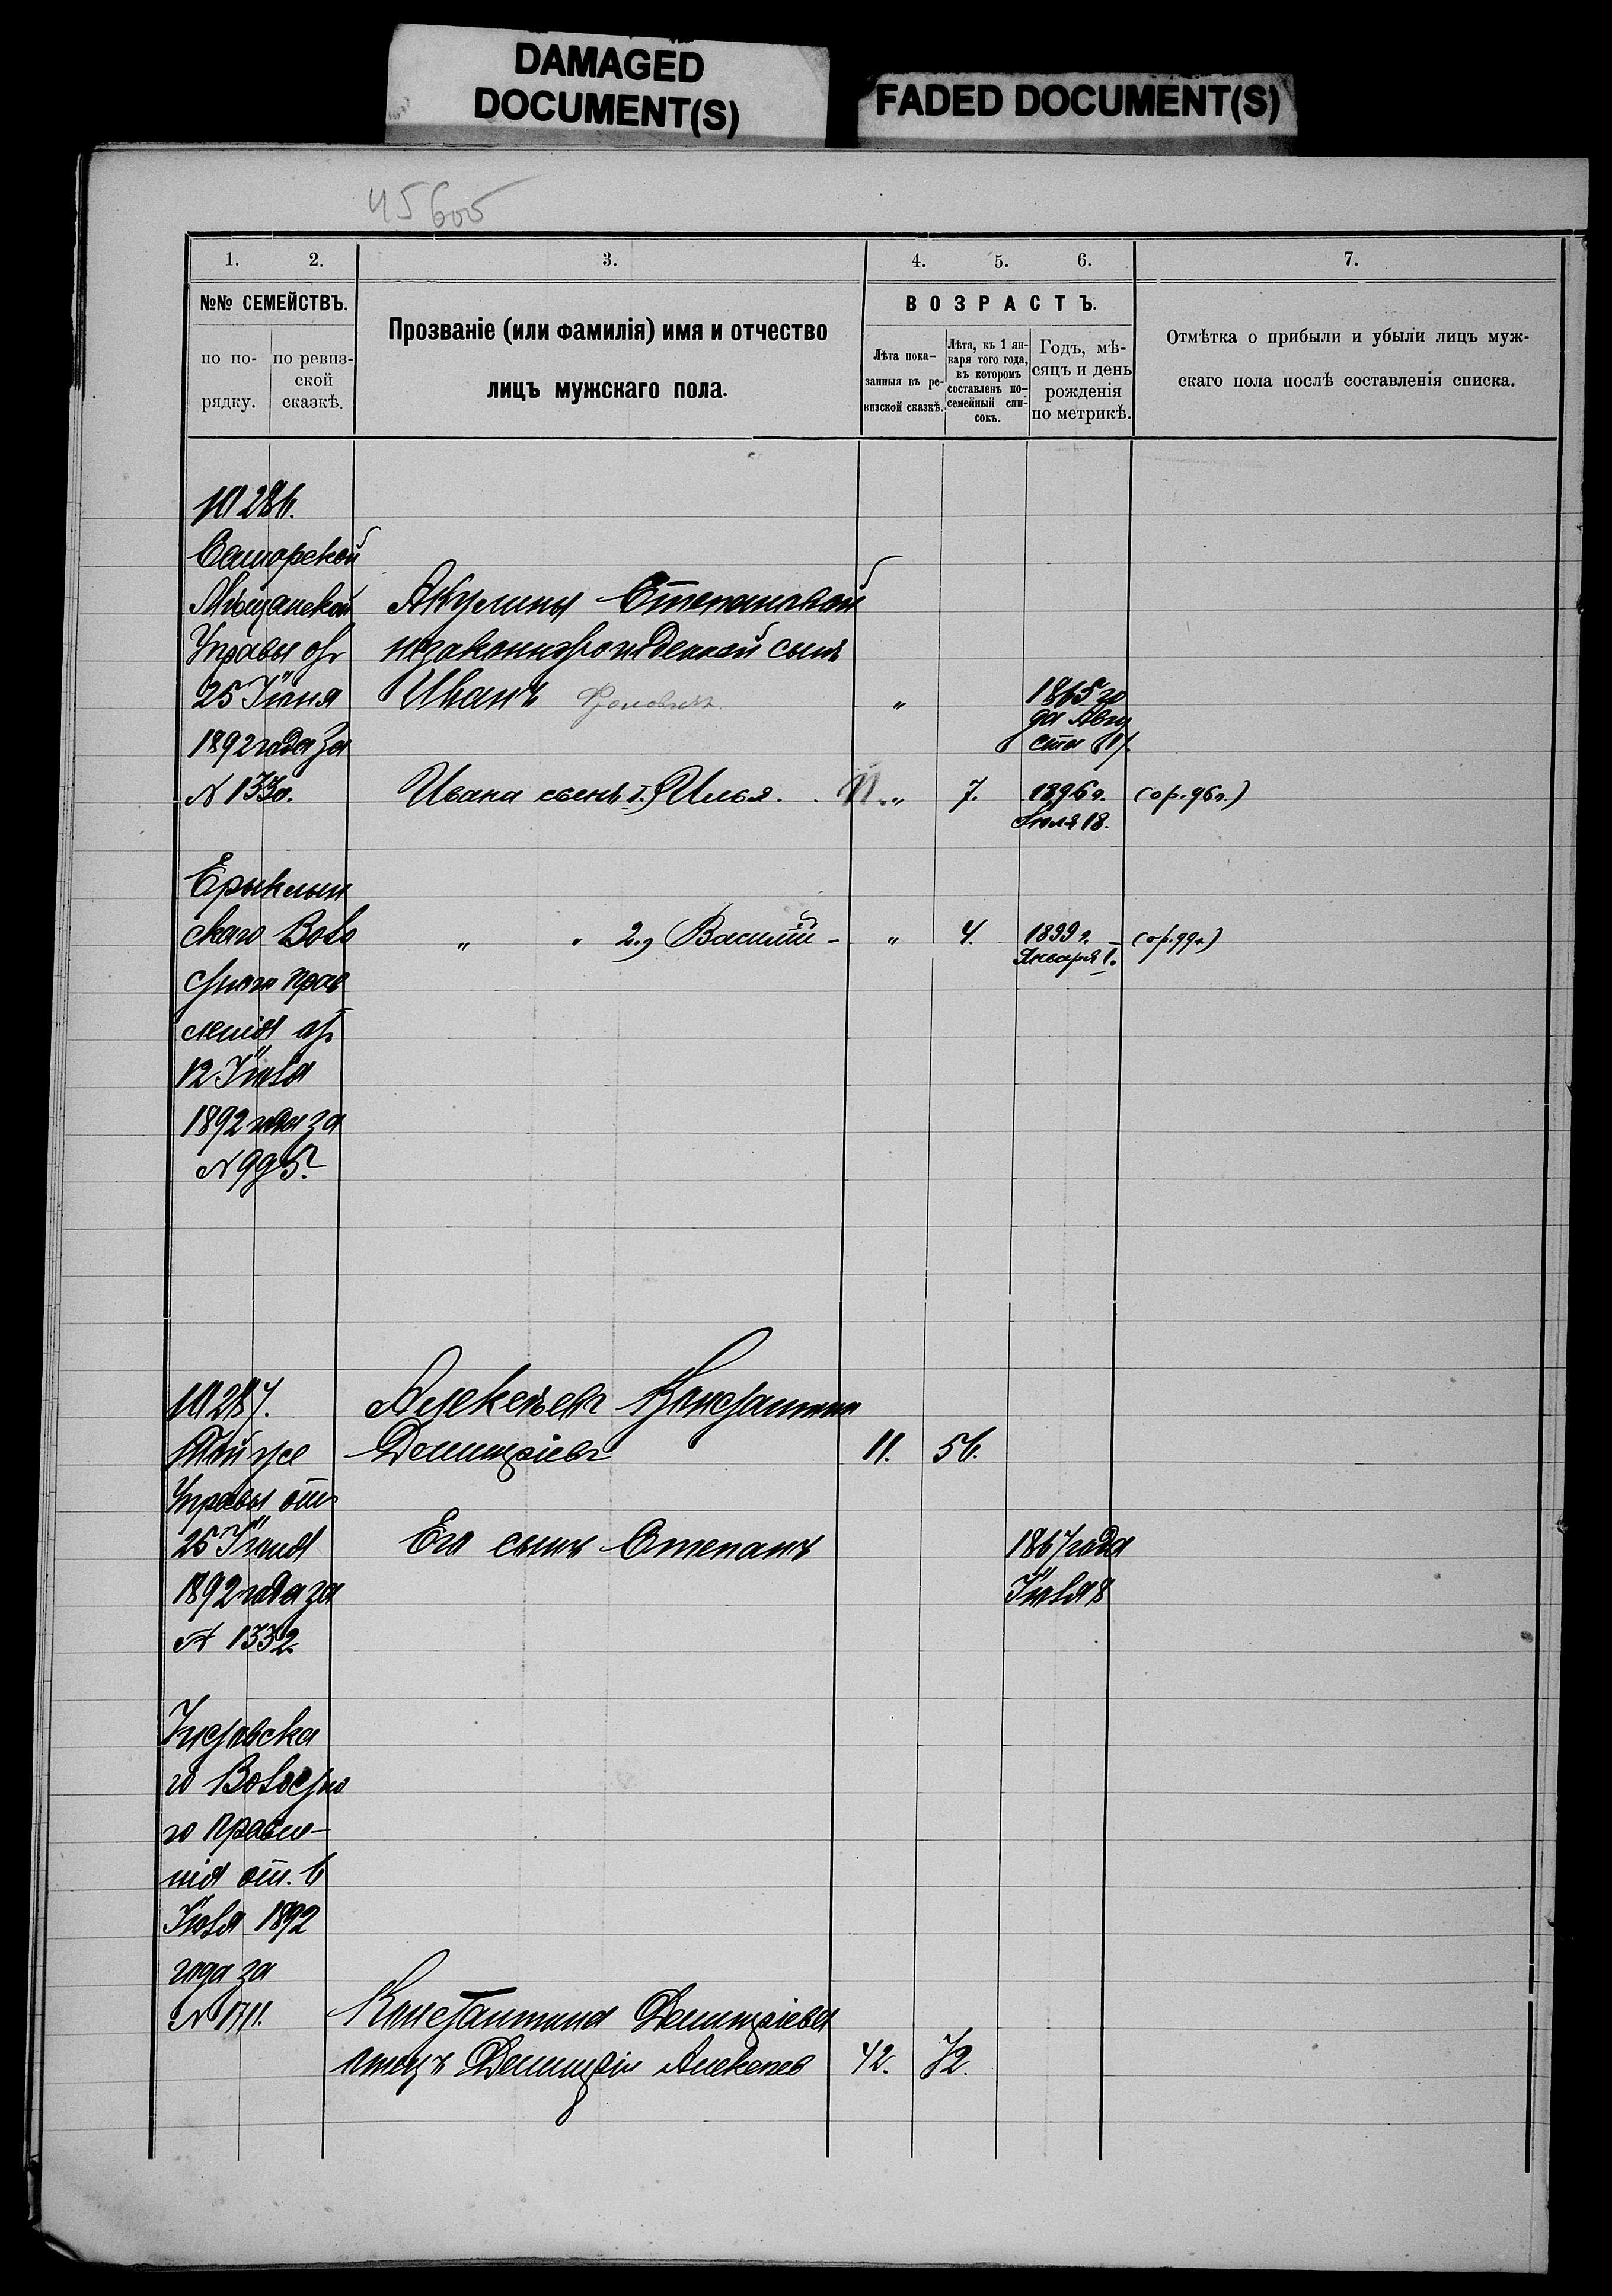 DAMAGED
DOCUMENT(S)
FADED DOCUMENT(S)
45605
1. 2. 3. 4. 5. 6. 7.
№№ СЕМЕЙСТВЪ.
по по-
рядку.
по ревиз-
ской
сказкѣ.
Прозваніе (или фамилія) имя и отчество
лицъ мужскаго пола.
ВОЗРАСТЪ.
Лѣта пока-
занныя въ ре-
визской сказкѣ.
Лѣта, къ 1 ян-
варя того года,
въ которомъ
составленъ по-
семейный спи-
сокъ.
Годъ, мѣ-
сяцъ и день
рожденія
по метрикѣ.
Отмѣтка о прибыли и убыли лицъ муж-
скаго пола послѣ составленія списка.
286.
Самарской
Мѣщанской
Управы от
25 Іюня
1892 года за
№ 1330.
Акулины Степановой
незаконнорожденной сынъ
Иванъ „
1865 го
да Авгу
ста 17.
Ивана сынъ 1.) Илья. „ 7. 1896 г. (ор. 96 г.)
Іюля 18.
Ерыклын
скаго Воло
стного прав
ленія от
12 Іюля
1892 года за
№ 995.
„ „ 2., Василій - „ 4. 1899 г. (ор. 99 г.)
Января 1.
287.
Той же
Управы от
25 Іюня
1892 года за
№ 1332.
Алексѣевъ Константинъ
Димитріевъ 11. 56.
Его сынъ Степанъ 1867 года
Іюля 8
го Волостно
го Правле-
нія от. 6
Іюля 1892
года за
№ 1711.
Константина Димитріева
отецъ Димитрій Алексѣев 42. 72.